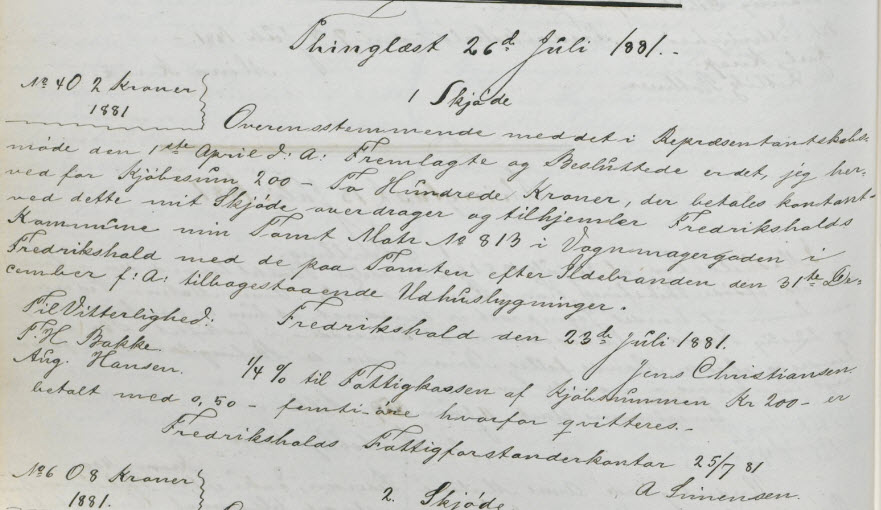 Thinglæst 26d Juli 1881.-
No 40 2 Kroner
1881
1 Skjöde
Overensstemmende med det i Repræsentantskabs-
möde den 1ste April d: A: Fremlagte og Besluttede er det, jeg her-
ved for Kjöbesum 200 - To Hundrede Kroner, der betales kontant-
ved dette mit Skjöde overdrager og tilhjemler Fredriksholds
Kommune min Tomt Matr No 813 i Vognmagergaden i
Fredrikshald med de paa Tomten efter Ildebranden den 31te De-
cember f: A: tilbagestaaende Udhusbygninger.
Fredrikshald den 23de Juli 1881.
Til Vitterlighed:
Jens Christiansen
F. H Bakke
Aug. Hansen.
1/4 % til Fattigkassen af Kjöbsummen Kr 200 - er
betalt med 0,50 - femti-öre hvorfor qvitteres.-
Fredriksholds Fattigforstanderkontor 25/7 81
A Simensen.
No 6 0 8 Kroner
1881.
2. Skjöde